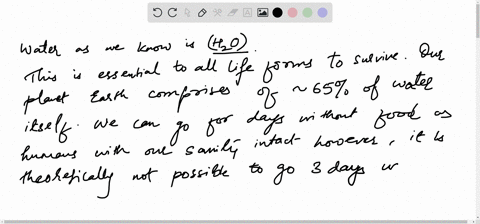 Water as we know is (H2O).
This is essential to all life forms to survive. Our
planet Earth comprises of ~65% of water
itself. We can go for days without food as
humans with our sanity intact however, it is
theoretically not possible to go 3 days w